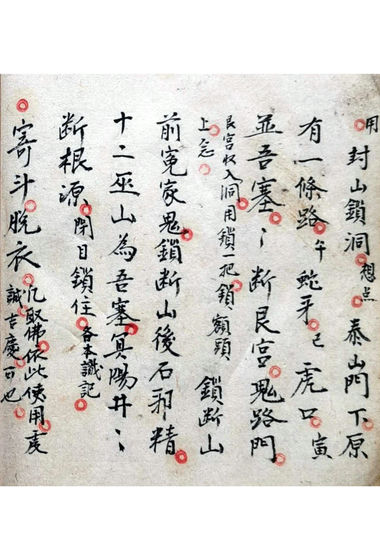 用 封山鎖洞 想点 泰山門下原
有一條路 午 蛇牙 己 虎口 寅
並吾塞〻断艮宮鬼路門
艮宮收入洞用鎖一把鎖額頭 鎖断山
上念
前冤家鬼鎖断山後石邪精
十二巫山為吾塞冥陽井〻
断根源 閉目鎖住 各本識記
寄斗脱衣 凡収佛依此使用虔
誠吉慶百也